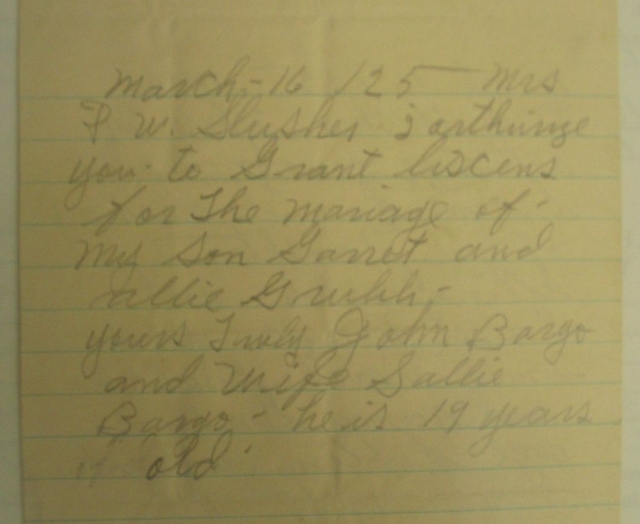 March-16 /25 — Mrs
P W. Slusher i arthurize
you to Grant liscens
for The mariage of
My Son Garret and
allie Grubb-
yours Truly John Bargo
and Wife Sallie
Bargo - he is 19 years
old